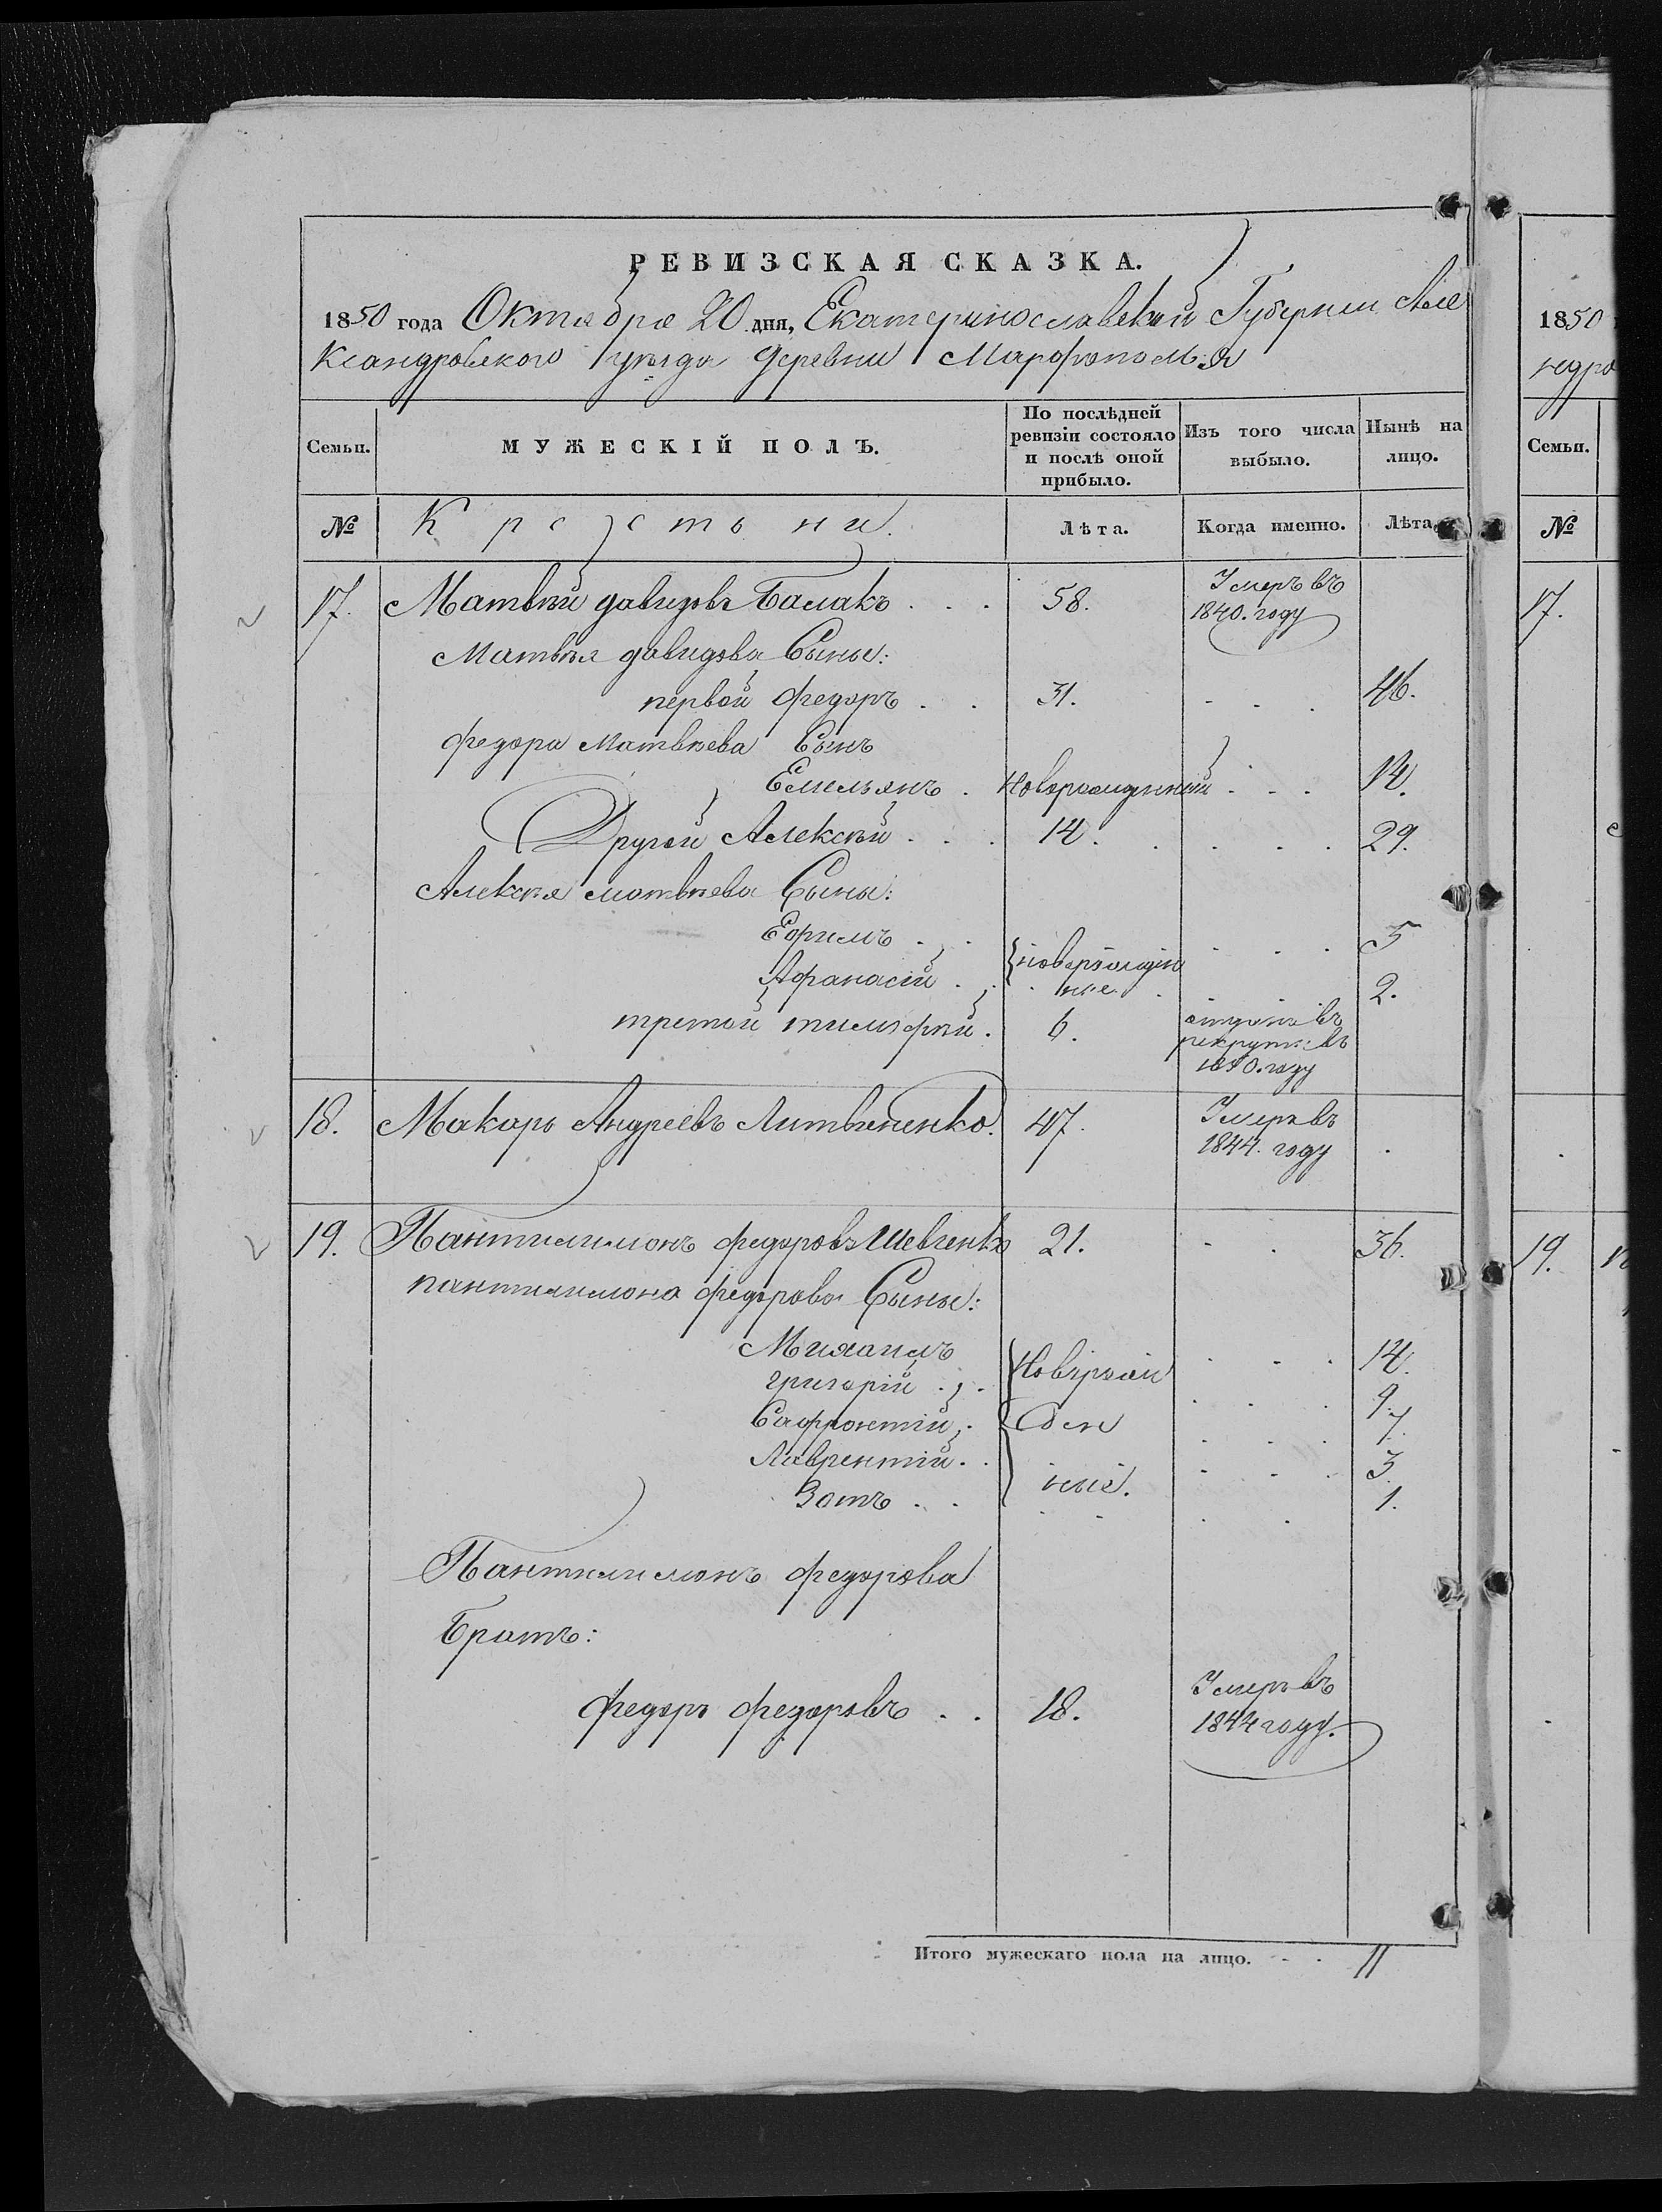 РЕВИЗСКАЯ СКАЗКА.
1850 года Октября 20 дня, Екатеринославской Губернии Але
ксандровского уѣзда деревни Марфополя
Семьи. МУЖЕСКІЙ ПОЛЪ. По послѣдней ревизіи состояло и послѣ оной прибыло. Изъ того числа выбыло. Нынѣ на лицо.
№ Крестьяни. Лѣта. Когда именно. Лѣта.
17. Матвѣй давидовъ Балакъ . . . 58. Умеръ въ 1840. году
Матвѣя давидова Сыны:
первой Федоръ . . 31. . . . 46.
Федора Матвѣева Сынъ
Емельянъ . Новорожденный . . . 14.
Другой Алексѣй . . . 14. . . . . 29.
Алексѣя матвѣева Сыны:
Ефимъ . . новорожден . . . 5
Афанасій . . ные . . 2.
третой тимофѣй . 6. отданъ въ рекруты въ 1840. году
18. Макаръ Андреевъ Литвиненко. 47. Умеръ въ 1844. году .
19. Пантилимонъ федоровъ Шевченко 21. . . 36.
пантилимона федорова Сыны:
Михаилъ Новорож . . . 14.
григорій . . . . . 9.
Сафронтій . ден . . . 7.
Лаврентій . . . . . 3.
Зотъ . . ные. . . 1.
Пантилимонъ федорова
Братъ:
федоръ федоровъ . . 18. Умеръ въ 1844 году.
Итого мужескаго пола на лицо. - . 11
1850
Семьи.
№
17.
19.